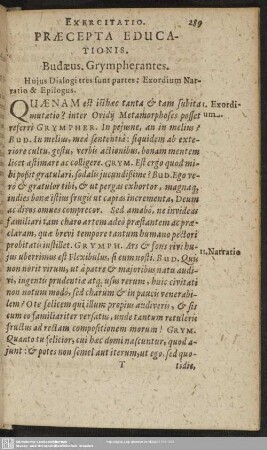 EXERCITATIO. 289
PRÆCEPTA EDUCA-
TIONIS.
Budæus. Grympherantes.
Hujus Dialogi tres sunt partes: Exordium Nar-
ratio & Epilogus.
QUÆNAM est iſthæc tanta & tam ſubita
mutatio? inter Ovidij Metamorphoſes poſſet
referri GRYMPHER. In pejusne, an in melius?
BUD. In melius, meâ ſententiâ: ſiquidem ab exte-
riore cultu, geſtu, verbis actionibus, bonam mentem
licet æſtimare ac colligere. GRYM. Eſt ergo quod mi-
hi poſsit gratulari, ſodalis jucundiſsime? BUD. Ego ve-
rò & gratulor tibi, & ut pergas exhortor, magnaq;
indies bonæ iſtius frugi ut capias incrementa, Deum
ac divos omnes comprecor. Sed amabò, ne invideas
familiari tam charo artem adeò præſtantem ac præ-
claram, quæ brevi tempore tantum humano pectori
probitatis inſtillet. GRYMPH. Ars & fons rivi hu-
jus uberrimus eſt Flexibulus, ſi eum noſti. BUD. Qui
non nôrit virum, ut à patre & majoribus natu audi-
vi, ingentis prudentiæ atq; uſus rerum, huic civitati
non notum modò, ſed charum & in paucis venerabi-
lem? O te felicem qui illum propius audiveris, & ſis
cum eo familiariter verſatus, unde tantum retuleris
fructus ad rectam compoſitionem morum! GRYM.
Quanto tu felicior, cui hæc domi naſcuntur, quod a-
junt: & potes non ſemel aut iterum, ut ego, ſed quo-
T tidie,
I. Exordi-
um.
II. Narratio